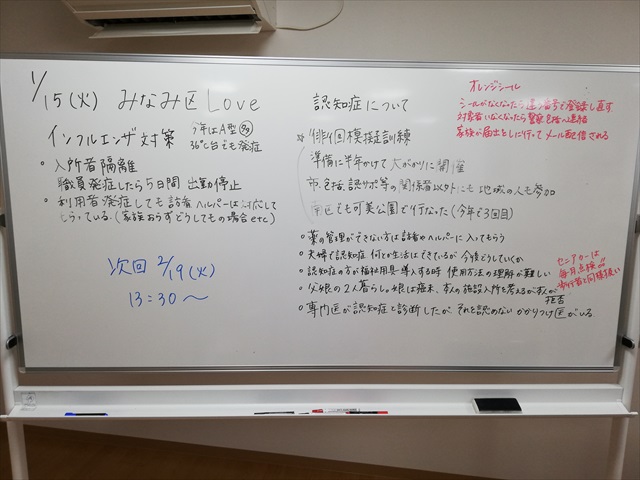 1/15(火) みなみ区 Love
インフルエンザ対策 今年はA型多い
36℃台でも発症
• 入所者隔離
職員発症したら5日間 出勤停止
• 利用者発症しても訪看 ヘルパーは対応して
もらっている。(家族おらずどうしてもの場合etc)
次回 2/19(火)
13:30〜
認知症について
☆ 徘徊模擬訓練
準備に半年かけて 大がかりに開催
市、包括、認サポ等の関係者以外にも 地域の人も参加
南区でも可美公園で行なった(今年で3回目)
• 薬の管理ができない方は訪看やヘルパーに入ってもらう
• 夫婦で認知症 何とか生活はできているが 今後どうしていくか
• 認知症の方が福祉用具導入する時 使用方法の理解が難しい
• 父娘の2人暮らし。娘は癌末、本人の施設入所を考えるが本人が
拒否
• 専門医が認知症と診断したが それを認めない かかりつけ医がいる
オレンジシール
シールがなくなったら違う番号で登録し直す
対象者いなくなったら警察、包括へ連絡
家族が届出をしに行って メール配信される
セニアカーは
毎月点検
歩行者と同様扱い